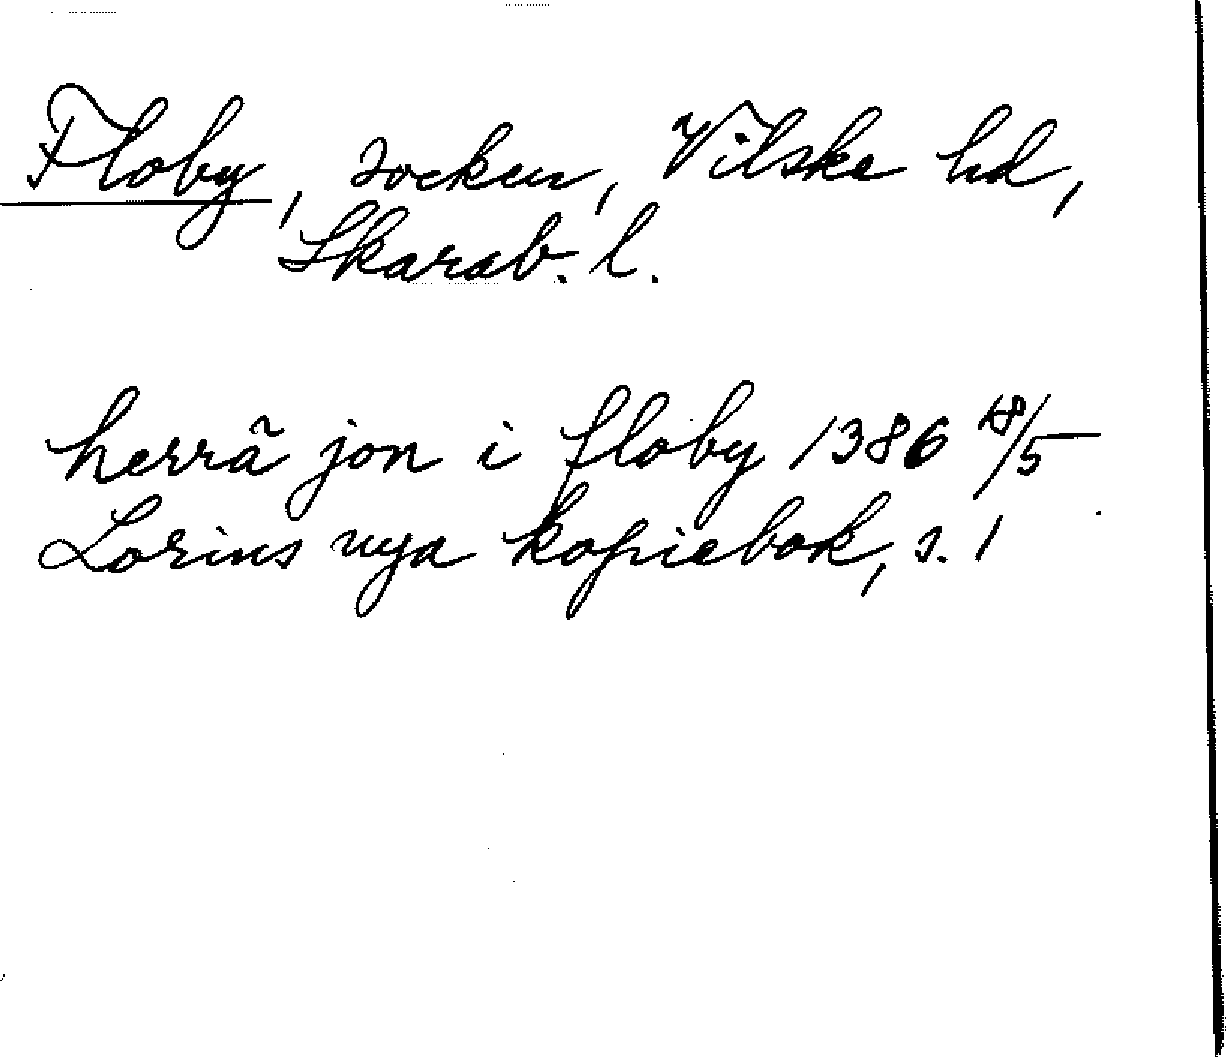 Floby, socken, Vilske hd,
Skarab. l.
herrã jon i floby 1386 18/5
Lorins nya kopiebok, s. 1